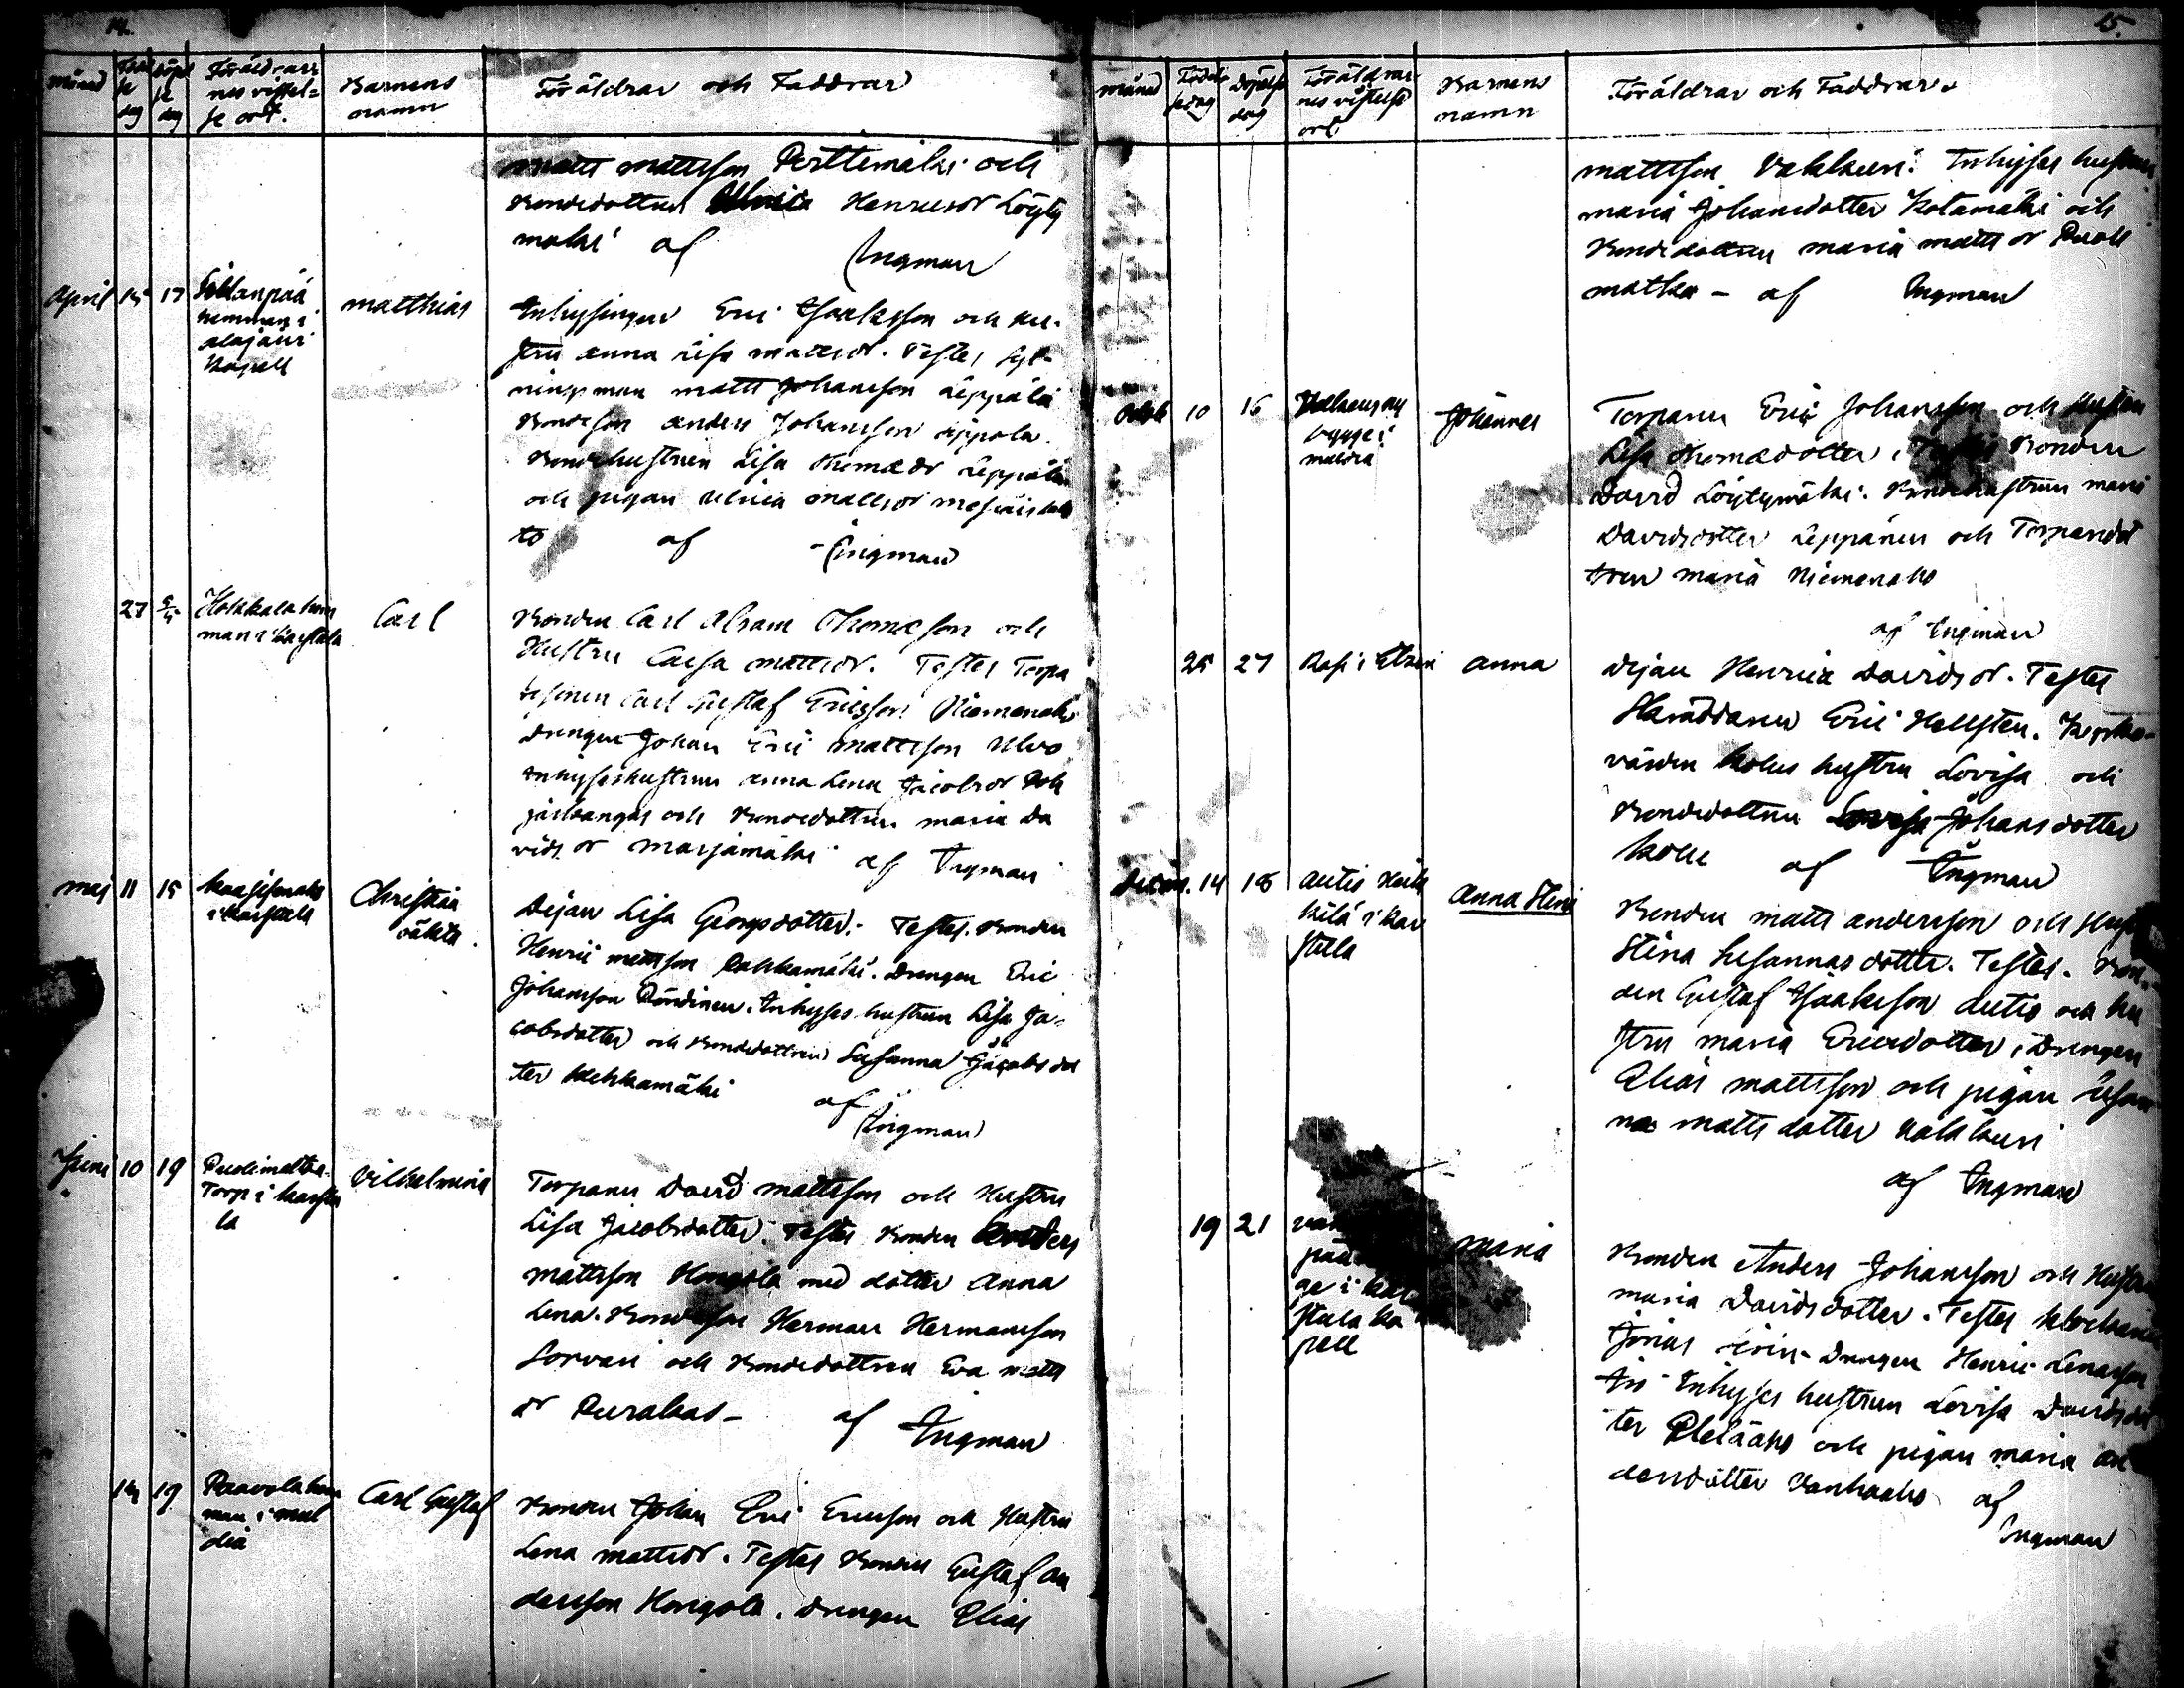 14.
månad
Födelse dag
döpelse dag
Föräldrar-
nes vistel=
se ort.
Barnens
namn
Föräldrar och Faddrar
matts mattsson Perttimäki och
Bondedottren Ulrica Henricsdr Löyty
mäki af Ingman
April 15 17
hemman i
alajärvi
Kapell
matthias
Inhysingen Eric Isaaksson och hu-
stru anna Lisa mattsdr. Testes Syt-
ningsman matts Johansson Leppälä
Bondeson anders Johansson Leppälä
Bondehustrun Lisa thomædr Leppälä
och pigan Ulrica mattsdr
to af Ingman
27
Hokkala hem
man i Karstula
Carl
Bonden Carl Abram Thomæson och
Hustru Caisa mattsdr. Testes Torpa
resonen Carl Gustaf Ericsson Niemenaho
drengen Johan Eric mattsson Ulvo
Inhyseshustrun anna Lena Jacobsdr Poh
jaskangas och Bondedottren maria Da
vidsdr marjamäki af Ingman
maj 11 15
i Karstula
Christia
oäkta.
Pijan Lisa Georgsdotter. Testes. Bonden
Henric mattsson Kokkamäki. Drengen Eric
Johansson Röndinen. Inhyses hustrun Lisa Ja=
cobsdotter och Bondedottren Susanna Jacobs dot
ter Kokkamäki
af Ingman
Juni 10 19
Puolimatka
Torp i Karstu
la
Vilhelmina
Torparen David mattsson och Hustru
Lisa Jacobsdotter. Testes Bonden Anders
mattsson Hongola med dotter Anna
Lena. Bondeson Herman Hermansson
Sorvari och Bondedottren Eva matts
dr Purakas - af Ingman
14 19
Paavola hem
man i mul
dia
Carl Gustaf
Bonden Johan Eric Ericsson och Hustru
Lena mattsdr. Testes Bonden Gustaf An
dersson Hongola. drengen Elias
15.
månad
Födel
sedag
döpelse
dag
Föräldrar
nes vistelse
ort
Barnens
namn
Föräldrar och Faddrar.
mattsson Vahlberi. Inhyses hustrun
maria Johansdotter Kotamäki och
Bondedottren maria matts dr Puoli
matka - af Ingman
Octob 10 16
bygge i
muldia
Johannes
Torparen Eric Johansson och Hustru
Lisa thomædotter. Testes Bonden
David Löytymäki. Bondehustrun maria
Davidsdotter Leppänen och Torparedot
tren maria Niemenaho
af Ingman
25 27
Rasi i Etzeri
Anna
Pijan Henrica Davidsdr. Testes
Skräddaren Eric Hellsten. Kyrko-
värden Kolus hustru Lovisa och
Bondedottren Lovisa Johansdotter
Kolu af Ingman
Decem. 14 18
Autis Heik
kilä i Kar
stula
Anna Stina
Bonden matts andersson och Hustru
Stina Susannas dotter. Testes. Bon-
den Gustaf Isaaksson Autio och hu
stru maria Ericsdotter, Drengen
Elias mattsson och pigan Susan
na matts dotter Kalikeri
af Ingman
19 21
ge i Kar
stula ka
pell
maria
Bonden Anders Johansson och Hustru
maria Davidsdotter. Testes klockaren
Jonas Drengen Henric
Inhyses hustrun Lovisa Davidsdot
ter och pigan maria an
dersdotter Vanhaaho af
Ingman